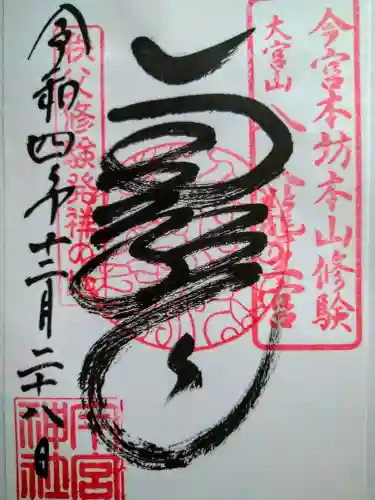 今宮本坊本山修験
大宮山
八大龍王宮
秩父修験発祥の
令和四年十二月二十八日
今宮神社